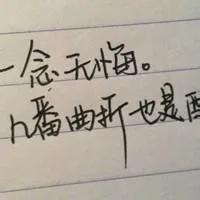 一念无悔。
几番曲折也是